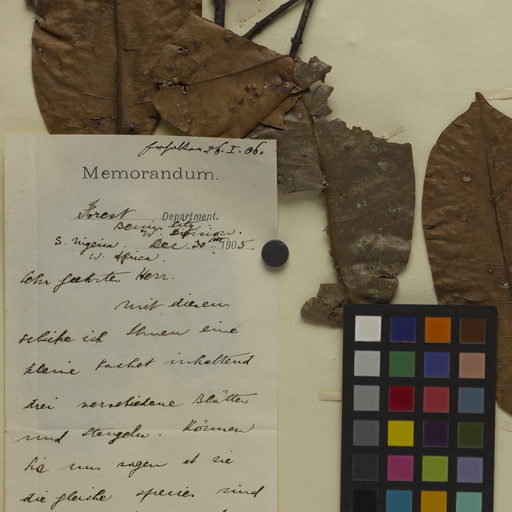 26. I. 06.
Memorandum.
Forest Department.
Benin City
W. Division.
S. Nigeria. Dec. 30th 1905
W. Africa.
Sehr geehrter Herr.
mit diesem
schicke ich Ihnen eine
kleine Packet inhaltend
drei verschiedene Blätter
und Stengeln. Können
Sie uns sagen ob sie
die gleiche species sind